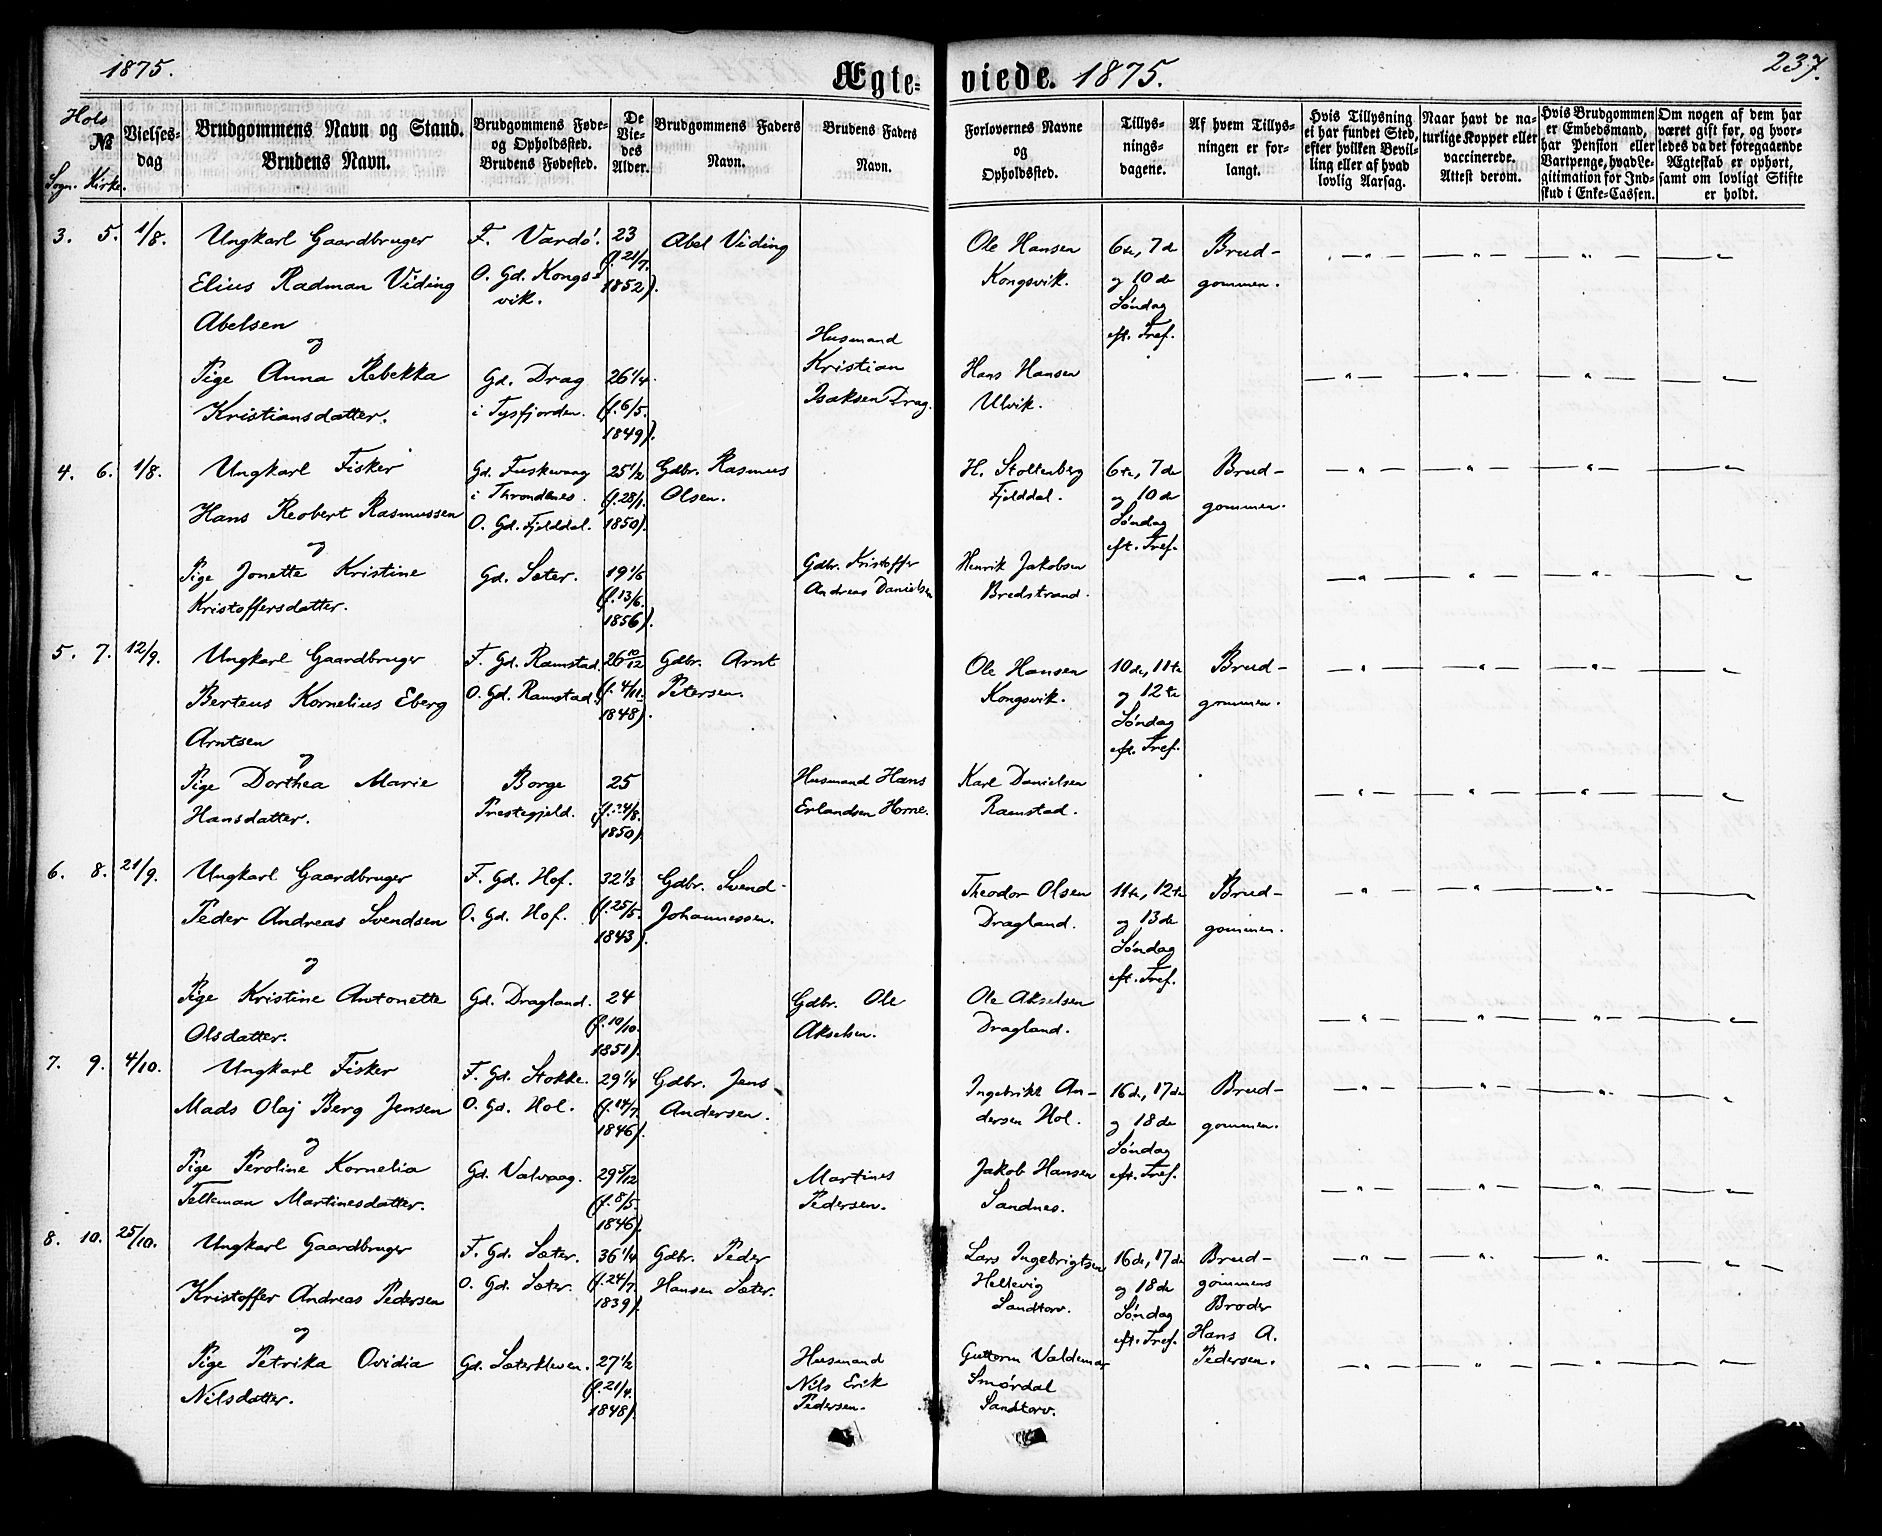 1875.
Ægteviede. 1875.
237.
Hols
Sogn. Kirke.
№
Vielses-
dag
Brudgommens Navn og Stand.
Brudens Navn.
Brudgommens Føde-
og Opholdsted.
Brudens Fødested.
De
Vie-
des
Alder.
Brudgommens Faders
Navn.
Brudens Faders
Navn.
Forlovernes Navne
og
Opholdsted.
Tillys-
nings-
dagene.
Af hvem Tillys-
ningen er for-
langt.
Hvis Tillysning
ei har fundet Sted,
efter hvilken Bevil-
ling eller af hvad
lovlig Aarsag.
Naar havt de na-
turlige Kopper eller
vaccinerede.
Attest derom.
Hvis Brudgommen
er Embedsmand,
har Pension eller
Vartpenge, hvad Le-
gitimation for Ind-
skud i Enke-Cassen.
Om nogen af dem har
været gift før, og hvor-
ledes da det foregaaende
Ægteskab er ophørt,
samt om lovligt Skifte
er holdt.
3. 5. 1/8.
Ungkarl Gaardbruger
Elius Radman Viding
Abelsen
og
Pige Anna Rebekka
Kristiansdatter.
F. Vardø.
O. Gd. Kongs-
vik.
Gd. Drag
i Tysfjorden.
23
(f. 21/7.
1852).
26 1/4
(f. 6/5.
1849).
Abel Viding
Husmand
Kristian
Isaksen Drag.
Ole Hansen
Kongsvik.
Hans Hansen
Ulvik.
6te, 7de
og 10de
Søndag
eft. Tref.
Brud-
gommen.
4. 6. 1/8.
Ungkarl Fisker
Hans Reobert Rasmussen
og
Pige Jonette Kristine
Kristoffersdatter.
Gd. Fuskevaag
i Throndenes.
O. Gd. Fjelddal.
Gd. Sæter.
25 1/2
(f. 28/1.
1850).
19 1/6
(f. 13/6.
1856).
Gdbr. Rasmus
Olsen.
Gdbr. Kristoffer
Andreas Danielsen
H. Stoltenberg
Fjelddal.
Henrik Jakobsen
Bredstrand.
6te, 7de
og 10de
Søndag
eft. Tref.
Brud-
gommen.
5. 7. 12/9.
Ungkarl Gaardbruger
Berteus Kornelius Eberg
Arntsen
og
Pige Dorthea Marie
Hansdatter.
F. Gd. Ramstad.
O. Gd. Ramstad.
Borge
Prestegjeld.
26 10/12
(f. 4/11.
1848).
25
(f. 24/8.
1850).
Gdbr. Arnt
Petersen.
Husmand Hans
Erlandsen Horne.
Ole Hansen
Kongsvik.
Karl Danielsen
Ramstad.
10de, 11te
og 12te
Søndag
eft. Tref.
Brud-
gommen.
6. 8. 21/9.
Ungkarl Gaardbruger
Peder Andreas Svendsen
og
Pige Kristine Antonette
Olsdatter.
F. Gd. Hof.
O. Gd. Hof.
Gd. Dragland.
32 1/3
(f. 25/5.
1843).
24
(f. 10/10.
1851).
Gdbr. Svend
Johannessen.
Gdbr. Ole
Akselsen.
Theodor Olsen
Dragland.
Ole Akselsen
Dragland.
11te, 12te
og 13de
Søndag
eft. Tref.
Brud-
gommen.
7. 9. 4/10.
Ungkarl Fisker
Mads Olaj Berg Jensen
og
Pige Peroline Kornelia
Telleman Martinesdatter.
F. Gd. Stokke.
O. Gd. Hol.
Gd. Valvaag.
29 1/4
(f. 14/7.
1846).
29 5/12
(f. 8/5.
1846).
Gdbr. Jens
Andersen.
Martines
Pedersen.
Ingebrikt An-
dersen Hol.
Jakob Hansen
Sandnes.
16de, 17de
og 18de
Søndag
eft. Tref.
Brud-
gommen.
8. 10. 25/10.
Ungkarl Gaardbruger
Kristoffer Andreas Pedersen
og
Pige Petrika Ovidia
Nilsdatter.
F. Gd. Sæter.
O. Gd. Sæter.
Gd. Sæterkleven.
36 1/4
(f. 24/7.
1839).
27 1/2
(f. 21/4.
1848).
Gdbr. Peder
Hansen Sæter.
Husmand
Nils Erik
Pedersen.
Lars Ingebrigtsen
Hellevig
Sandtorv.
Guttorm Valdemar
Smørdal
Sandtorv.
16de, 17de
og 18de
Søndag
eft. Tref.
Brud-
gommens
Broder
Hans A.
Pedersen.